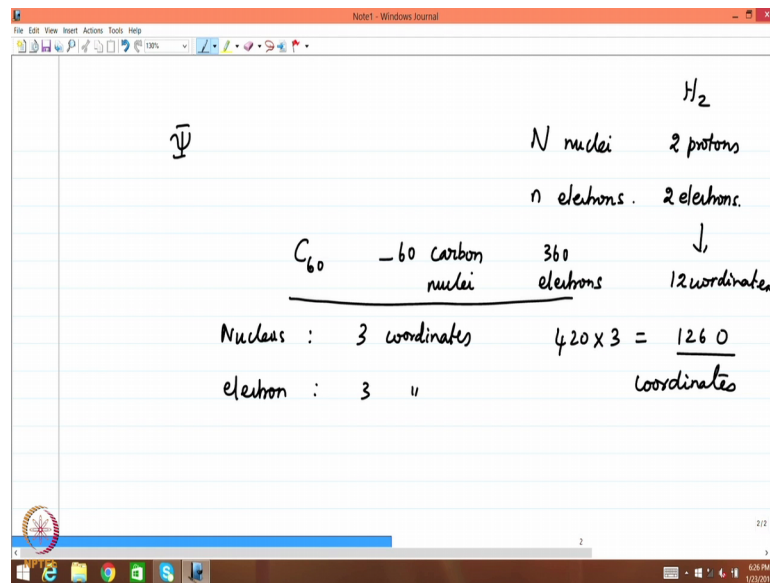 Note1 - Windows Journal
File Edit View Insert Actions Tools Help
130%
H2
Ψ
N nuclei 2 protons
n electrons. 2 electrons.
↓
C60 - 60 carbon nuclei 360 electrons 12 coordinates
Nucleus : 3 coordinates 420 x 3 = 1260 coordinates
electron : 3 "
2/2
2
NPTEL
6:26 PM
1/23/2015